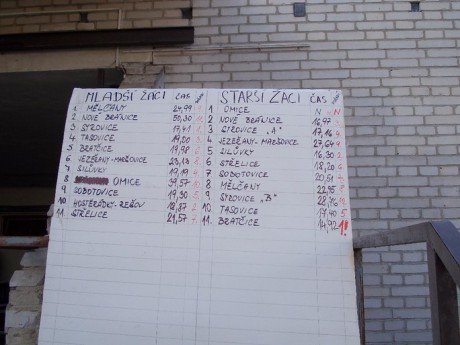 MLADŠÍ ŽÁCI ČAS
1. MĚLČANY 24,99
2 NOVÉ BRÁNICE 50,30
3 SYROVICE 17,41
4 TASOVICE 19,00
5 BRATČICE 19,98
6 JEZEŘANY-MARŠOVICE 23,13
7 SILŮVKY 19,19
8 OMICE 39,57
9 SOBOTOVICE 19,30
10 HOSTĚRÁDKY-REŠOV 18,87
11. STŘELICE 21,57
STARŠÍ ŽÁCI ČAS
1 OMICE N
2 NOVÉ BRÁNICE 16,97
3 SYROVICE "A" 17,16
4 JEZEŘANY-MARŠOVICE 27,64
5 SILŮVKY 16,30
6 STŘELICE 18,20
7 SOBOTOVICE 20,51
8 MĚLČANY 22,15
9 SYROVICE "B" 28,76
10. TASOVICE 17,40 5
11. BRATČICE 14,92 1!